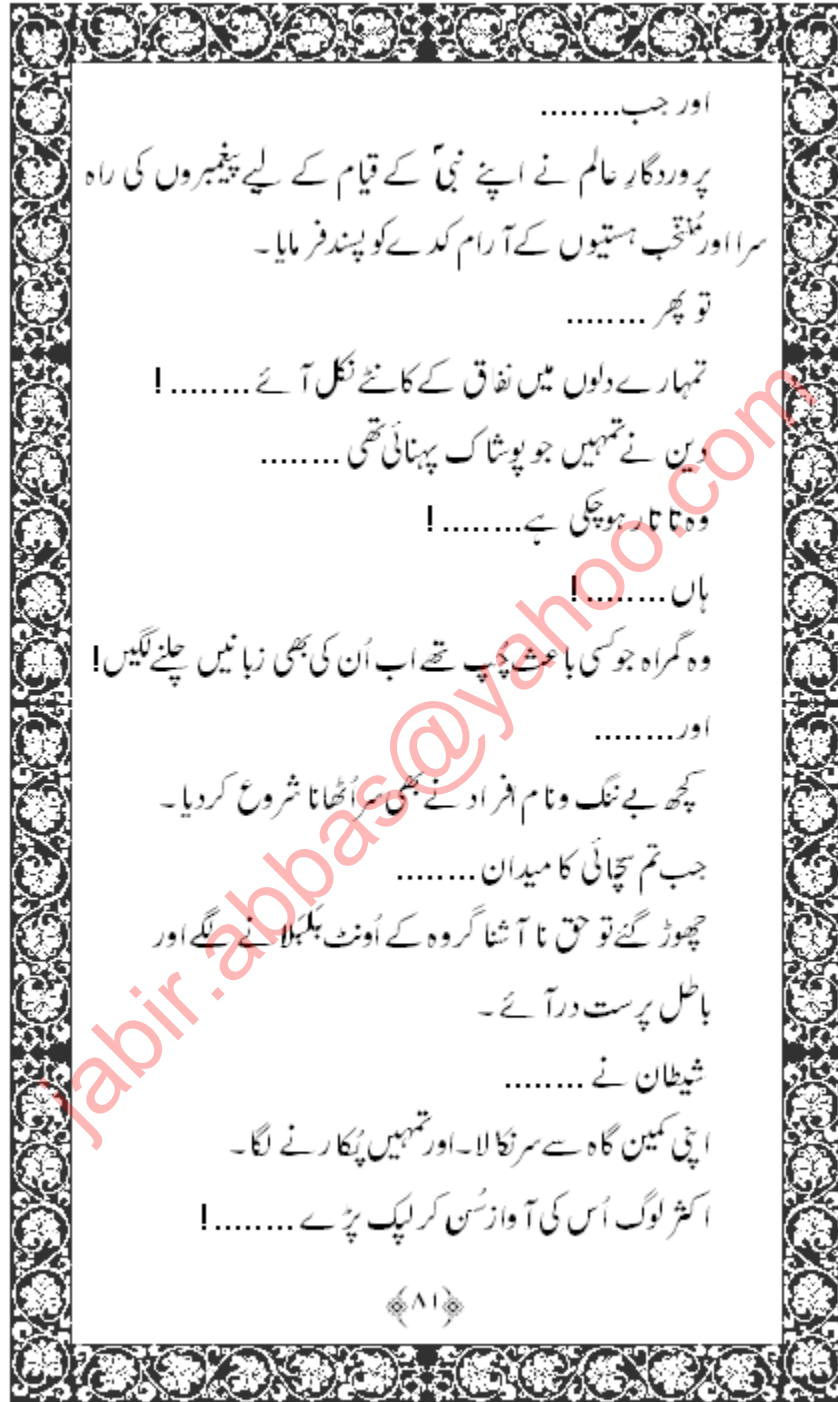 اور جب........
پروردگارِ عالم نے اپنے نبیؐ کے قیام کے لیے پیغمبروں کی راہ
سرا اور مُنتخب ہستیوں کے آرام کدے کو پسند فرمایا۔
تو پھر ........
تمہارے دلوں میں نفاق کے کانٹے نکل آئے ........!
دین نے تمہیں جو پوشاک پہنائی تھی ........
وہ تا تار ہوچکی ہے........!
ہاں ........!
وہ گمراہ جو کسی باعث چُپ تھے اب اُن کی بھی زبانیں چلنے لگیں!
اور........
کچھ بے ننگ و نام افراد نے بھی سر اُٹھانا شروع کردیا۔
جب تم سچّائی کا میدان ........
چھوڑ گئے تو حق نا آشنا گروہ کے اُونٹ بِلبَلانے لگے اور
باطل پرست درآئے۔
شیطان نے ........
اپنی کمین گاہ سے سر نکالا۔ اور تمہیں پُکارنے لگا۔
اکثر لوگ اُس کی آواز سُن کر لپک پڑے ........!
﴿۸۱﴾
jabir.abbas@yahoo.com